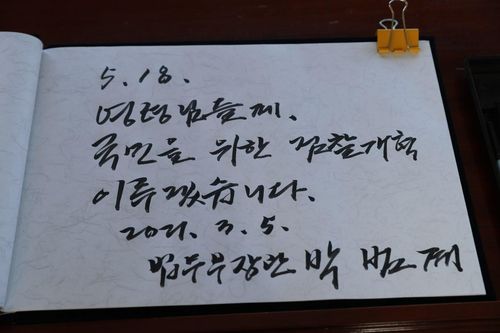 5.18.
영령님들께.
국민을 위한 검찰개혁
이루겠습니다.
2021. 3. 5.
법무부장관 박 범 계